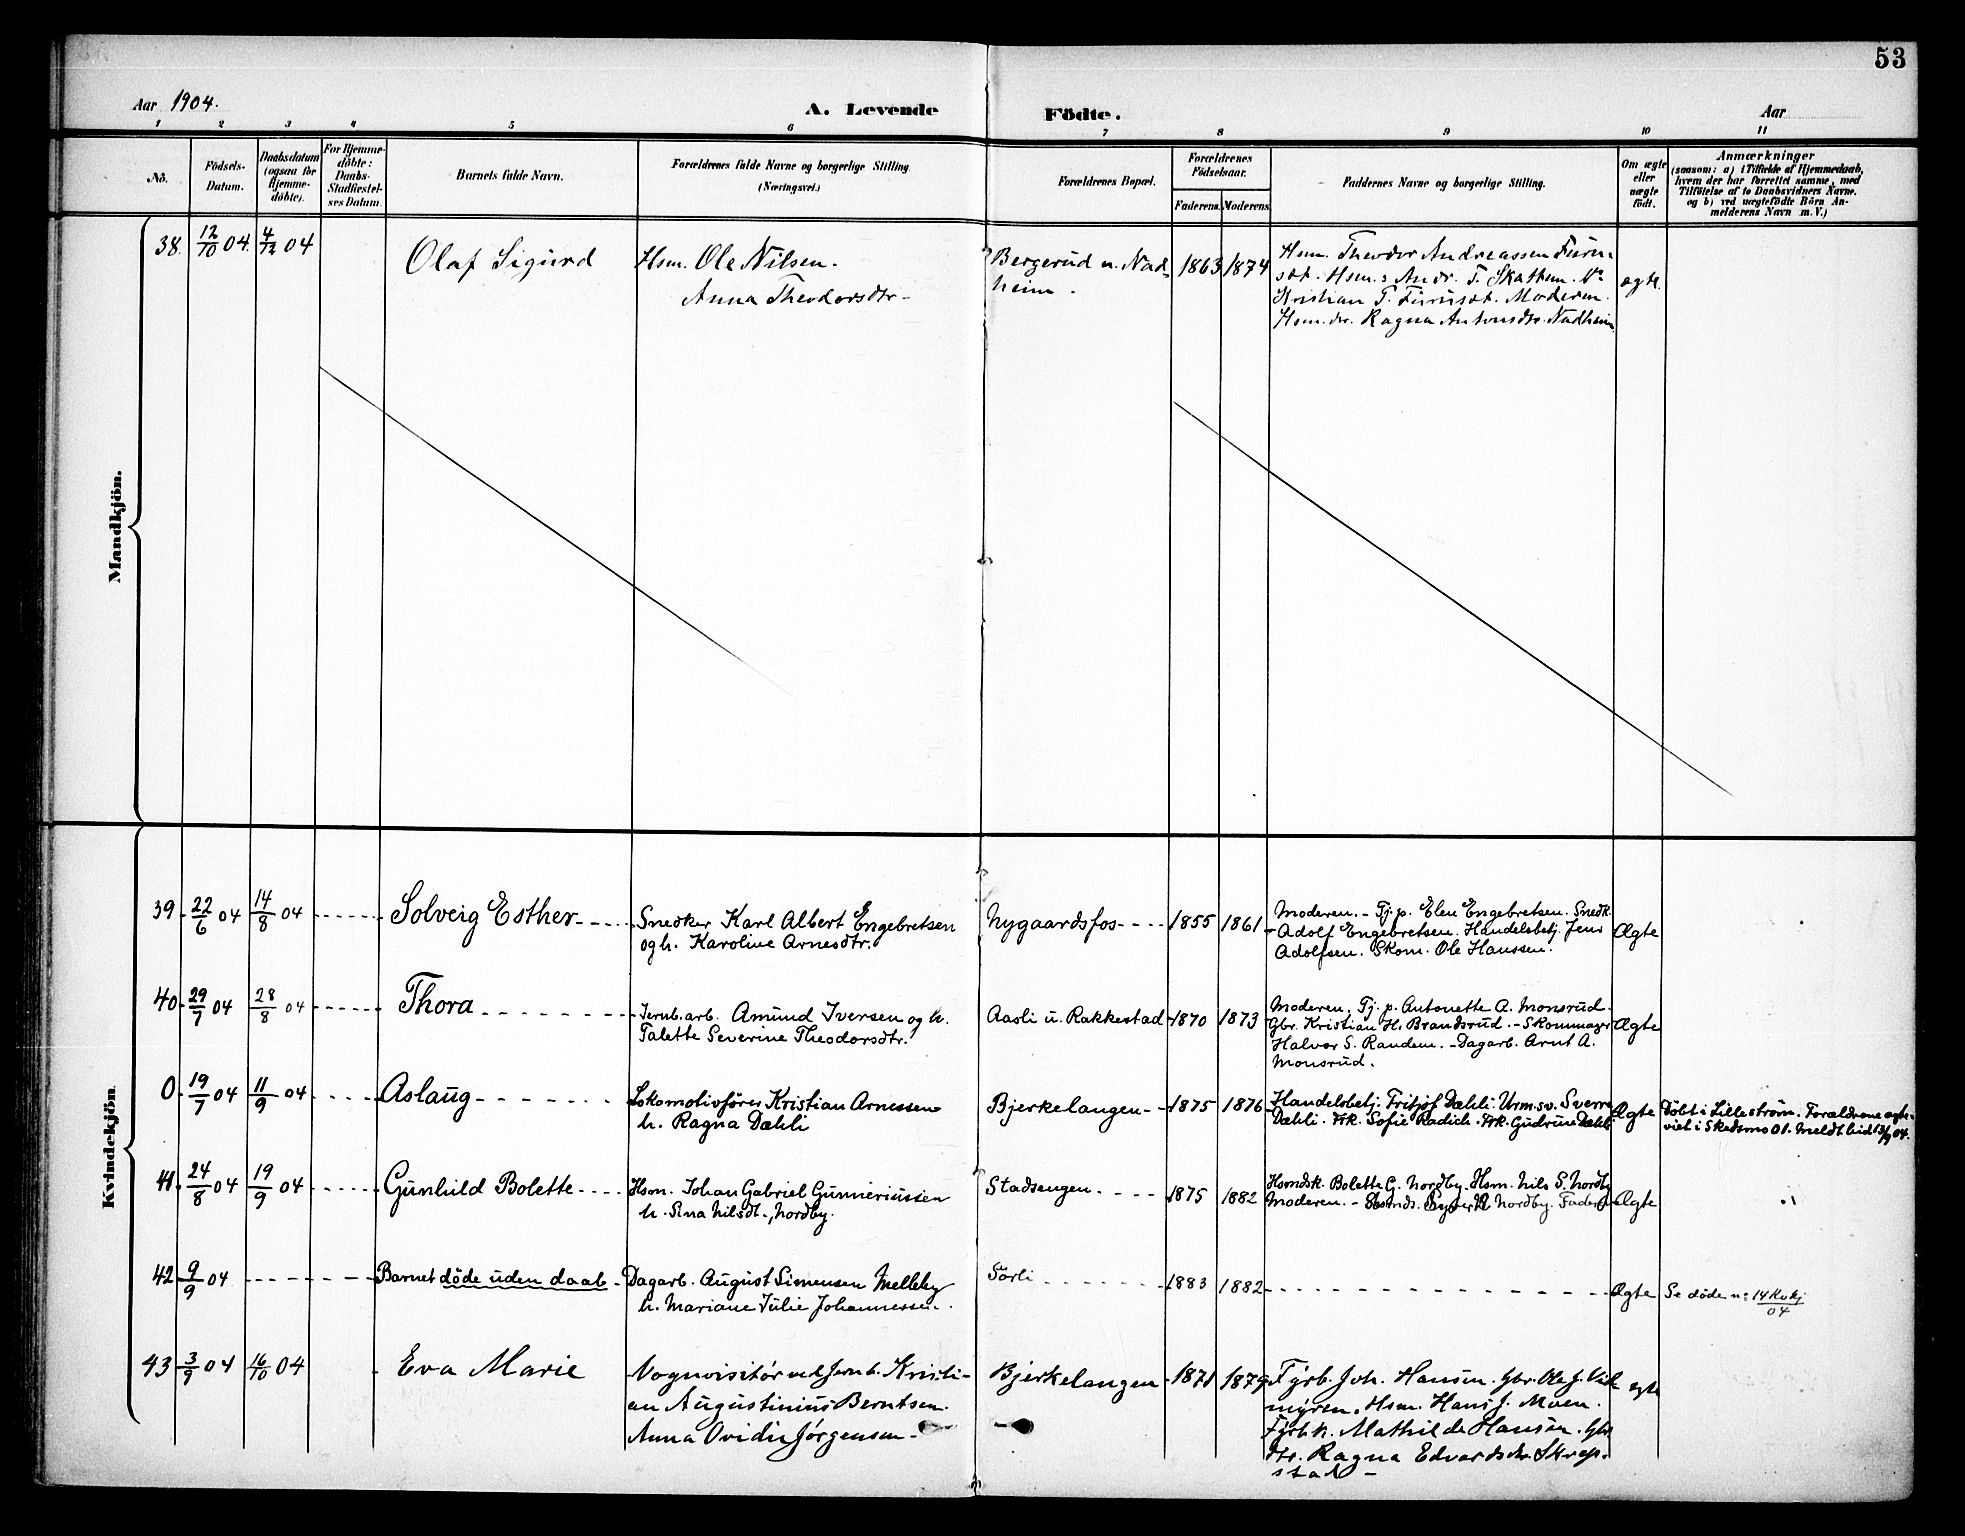 53
Aar 1904.
A. Levende Födte.
Aar
1 2 3 4 5 6 7 8 9 10 11
No.
Födsels-Datum.
Daabsdatum (ogsaa for Hjemme-döbte).
For Hjemme-döbte: Daabs-Stadfæstel-ses Datum.
Barnets fulde Navn.
Forældrenes fulde Navne og borgerlige Stilling (Næringsvei.)
Forældrenes Bopæl.
Forældrenes Födselsaar.
Faderens. Moderens.
Faddernes Navne og borgerlige Stilling.
Om ægte eller uægte födt.
Anmærkninger
(saasom: a) i Tilfælde af Hjemmedaab,
hvem der har forrettet samme, med
Tilföielse af to Daabsvidners Navne.
og b) ved uægtefödte Börn An-
melderens Navn m. V.)
Mandkjön.
38. 12/10 04. 4/12 04
Olaf Sigurd
Hsm. Ole Nilsen.
Anna Theodorsdtr.
Bergerud u. Nad-
heim.
1863 1874
Hsm. Theodor Andreassen Furu-
set. Hsm.s Andr. T. Skattum.
Kristian T. Furuset. Moderen.
Hsm.dr. Ragna Antonsdtr. Nadheim
ægte.
Kvindekjön
39 22/6 04 14/8 04
Solveig Esther
Snedker Karl Albert Engebretsen
og h. Karoline Arnesdtr.
Nygaardsfos
1855 1861
Moderen. - Tj. p. Elen Engebretsen. Snedk.
Adolf Engebretsen. Handelsbetj. Jens
Adolfsen. Skom. Ole Hanssen.
Ægte
40 29/7 04 28/8 04
Thora
Jernb.arb. Amund Iversen og h.
Talette Severine Theodorsdtr.
Aasli u. Rakkestad
1870 1873
Moderen. Tj. p. Antonette A. Monsrud.
Gbr. Kristian H. Brandsrud. - Skommager
Halvor S. Randem. - Dagarb. Arnt A.
Monsrud.
Ægte
0 19/7 04 11/9 04
Aslaug
Lokomotivfører Kristian Arnessen
h. Ragna Dæhli
Bjerkelangen
1875 1876
Handelsbetj. Fritjof Dæhli. Urm.sv. Sverre
Dæhli. Frk. Sofie Radich. Frk. Gudrun Dæhli
Ægte
Døbt i Lillestrøm. Forældrene egte-
viet i Skedsmo 01. Meldt hid 13/9 04.
41. 24/8 04 19/9 04
Gunhild Bolette
Hsm. Johan Gabriel Gunneriussen
h. Sina Nilsdt., Nordby.
Stadsengen
1875 1882
Hsmdsk. Bolette G. Nordby. Hsm. Nils S. Nordby
Moderen. - Nordby. Faderen
Ægte
42 9/9 04
Barnet døde uden daab
Dagarb. August Simensen Melleby
h. Mariane Julie Johannessen.
Sørli
1883 1882
Ægte
Se døde no 14 Kvkj/04
43 3/9 04 16/10 04
Eva Marie
Vognvisitør ved Jernb. Kristi-
an Augustinius Berntsen.
Anna Ovidie Jørgensen.
Bjerkelangen
1871 1879
Fyrb. Joh. Hansen. Gbr. Ole J.
myren. Hsm. Hans J. Moen.
Fyrb.k. Mathilde Hansen. Gbr.
dtr. Ragna Edvardsdtr. Skrep-
stad -
egte